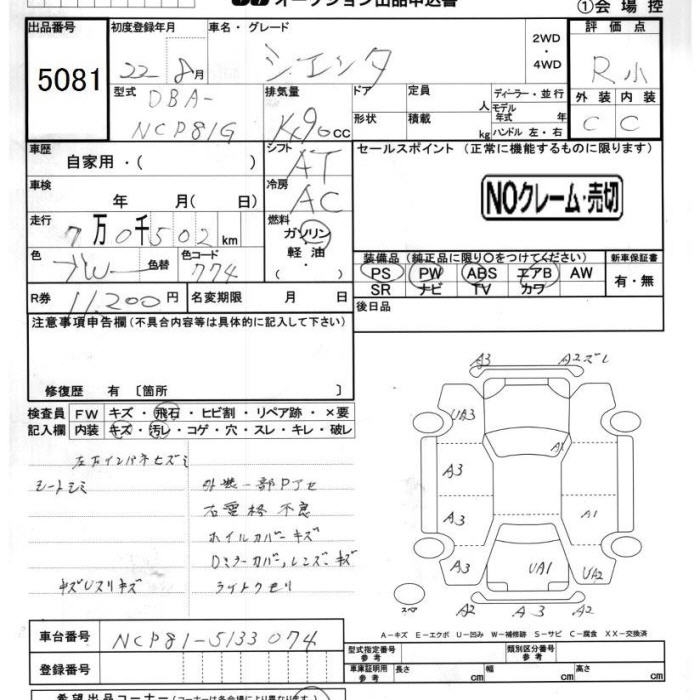 オークション出品申込書 ①会場控
出品番号 初度登録年月 車名・グレード 2WD・4WD 評価点
5081 22 8月 シエンタ R小
型式 DBA-NCP81G 排気量 cc ドア 定員 人 ディーラー・並行 外装 内装
形状 積載 kg モデル年式 年 ハンドル 左・右 C C
車歴 自家用・( ) シフト AT セールスポイント (正常に機能するものに限ります)
車検 年 月( 日) 冷房 AC NOクレーム・売切
走行 7万0千502km 燃料 ガソリン・軽油・( )
装備品 (純正品に限り○をつけてください) 新車保証書
色 W 色替 色コード 774 PS PW ABS エアB AW 有・無
SR ナビ TV カワ
R券 11,200円 名変期限 月 日 後日品
注意事項申告欄(不具合内容等は具体的に記入して下さい)
修復歴 有 〔箇所 〕
検査員 FW キズ・飛石・ヒビ割・リペア跡・×要
記入欄 内装 キズ・汚レ・コゲ・穴・スレ・キレ・破レ
左右インパネヒズミ
シートシミ 外装一部PJセ
右電格不良
ホイルカバーキズ
Dミラーカバー,レンズ.キズ
キズUスリキズ ライトクモリ
A3 A2ズレ
UA3 A1
A3
A3 A1
A3 UA1 UA2
スペア A2 A3 A2
A-キズ E-エクボ U-凹み W-補修跡 S-サビ C-腐食 XX-交換済
車台番号 NCP81-5133074 型式指定番号 参考 類別区分番号 参考
登録番号 車庫証明用 参考 長さ cm 幅 cm 高さ cm
希望出品コーナー(コーナーは各会場により異なります)